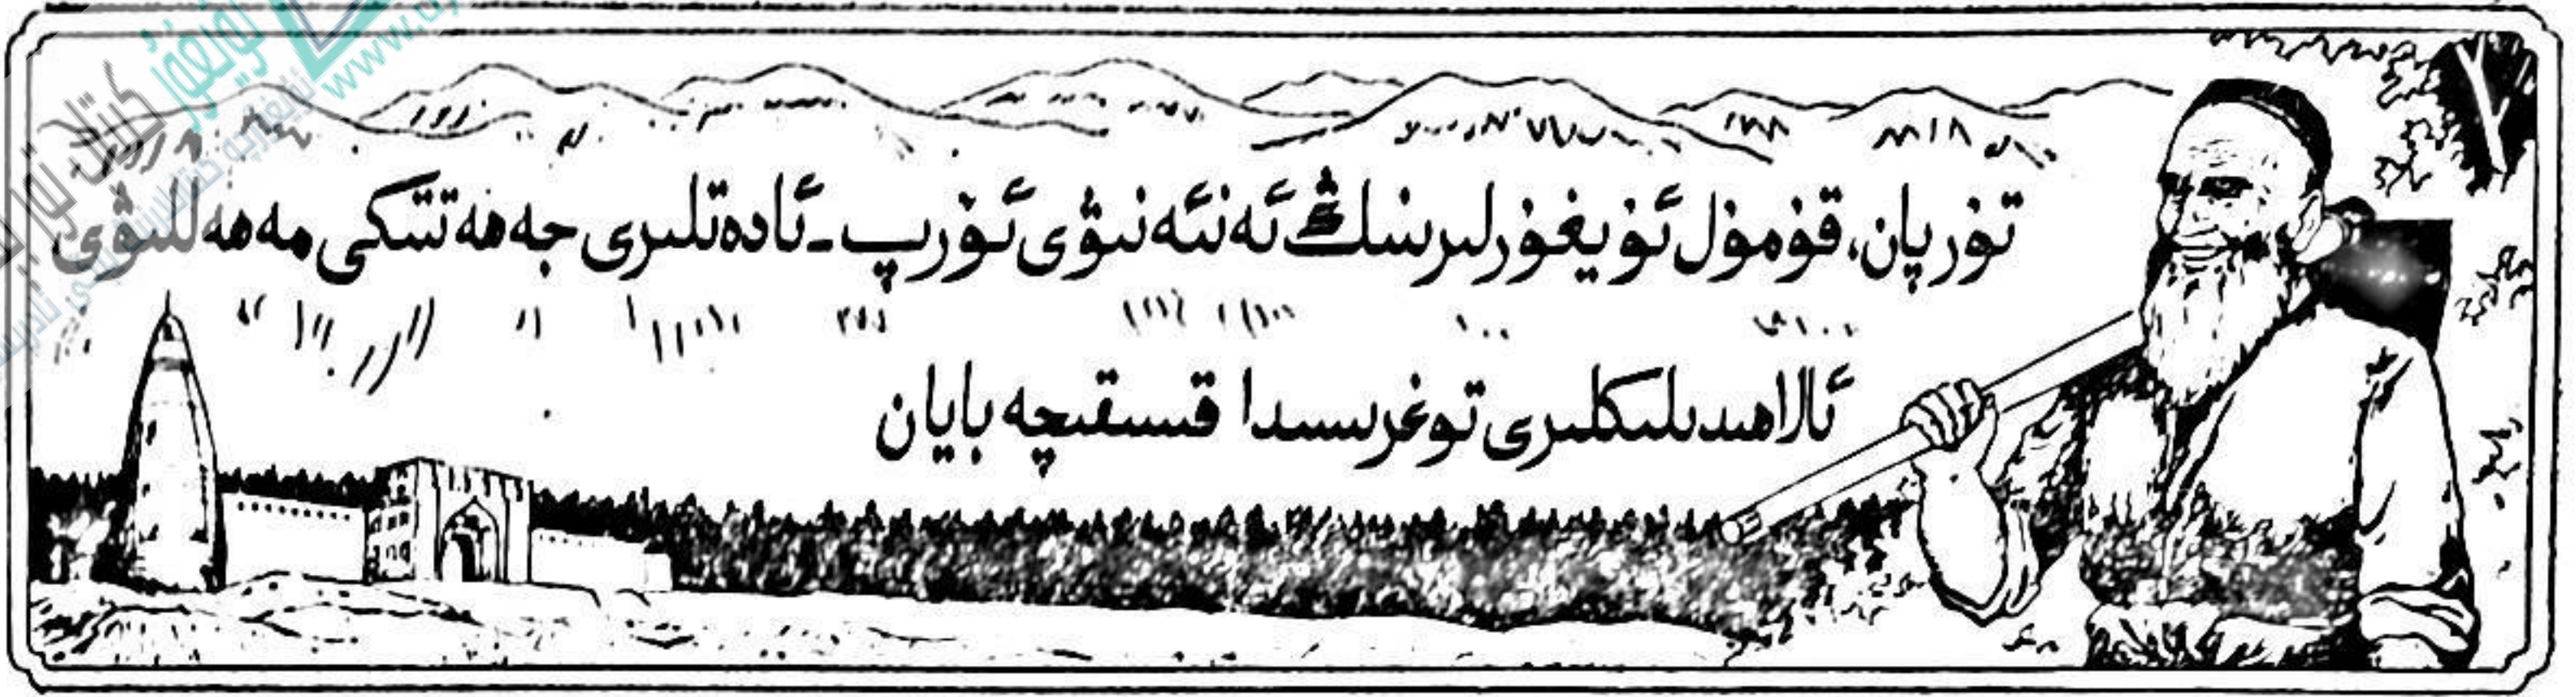 تۇرپان، قۇمۇل ئۇيغۇرلىرىنىڭ ئەنئەنىۋى ئۆرپ-ئادەتلىرى جەھەتتىكى مەھەللىۋى
ئالاھىدىلىكلىرى توغرىسىدا قىسقىچە بايان